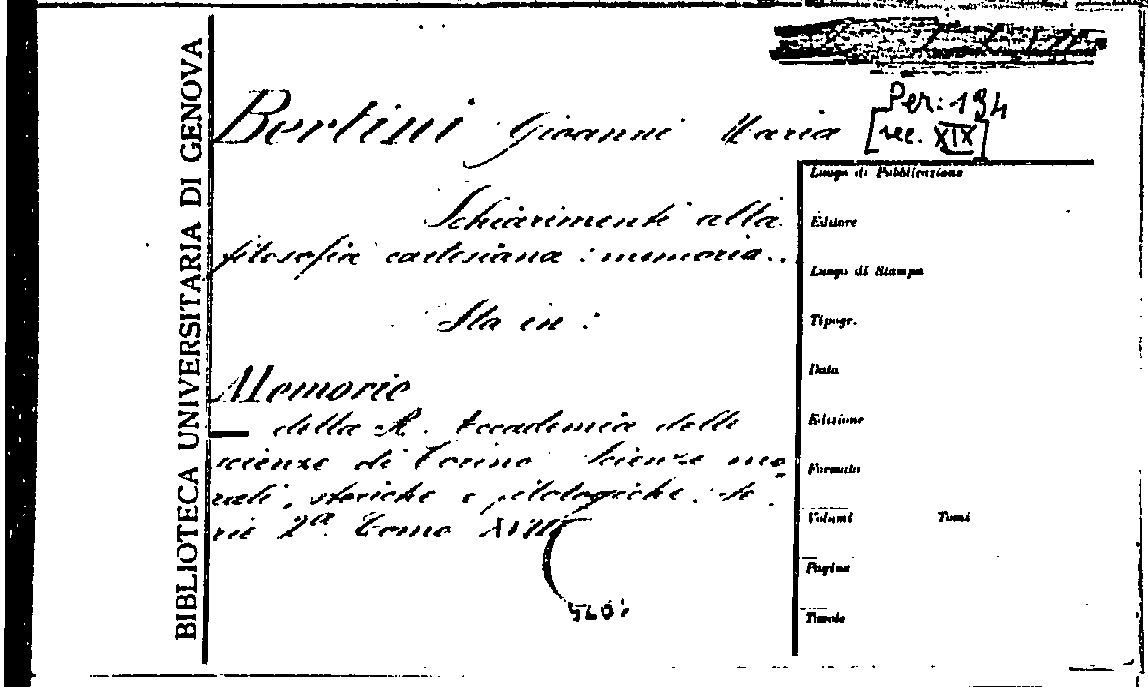 BIBLIOTECA UNIVERSITARIA DI GENOVA
Bertini Giovanni Maria
[Per: 194
sec. XIX]
Schiarimenti alla
filosofia cartesiana : memoria..
Sta in :
Memorie
della R. Accademia delle
scienze di Torino Scienze mo-
rali, storiche e filologiche. Se-
rie 2ª. Tomo XVIII
Luogo di Pubblicazione
Editore
Luogo di Stampa
Tipogr.
Data
Edizione
Formato
Volumi Tomi
Pagine
Tavole